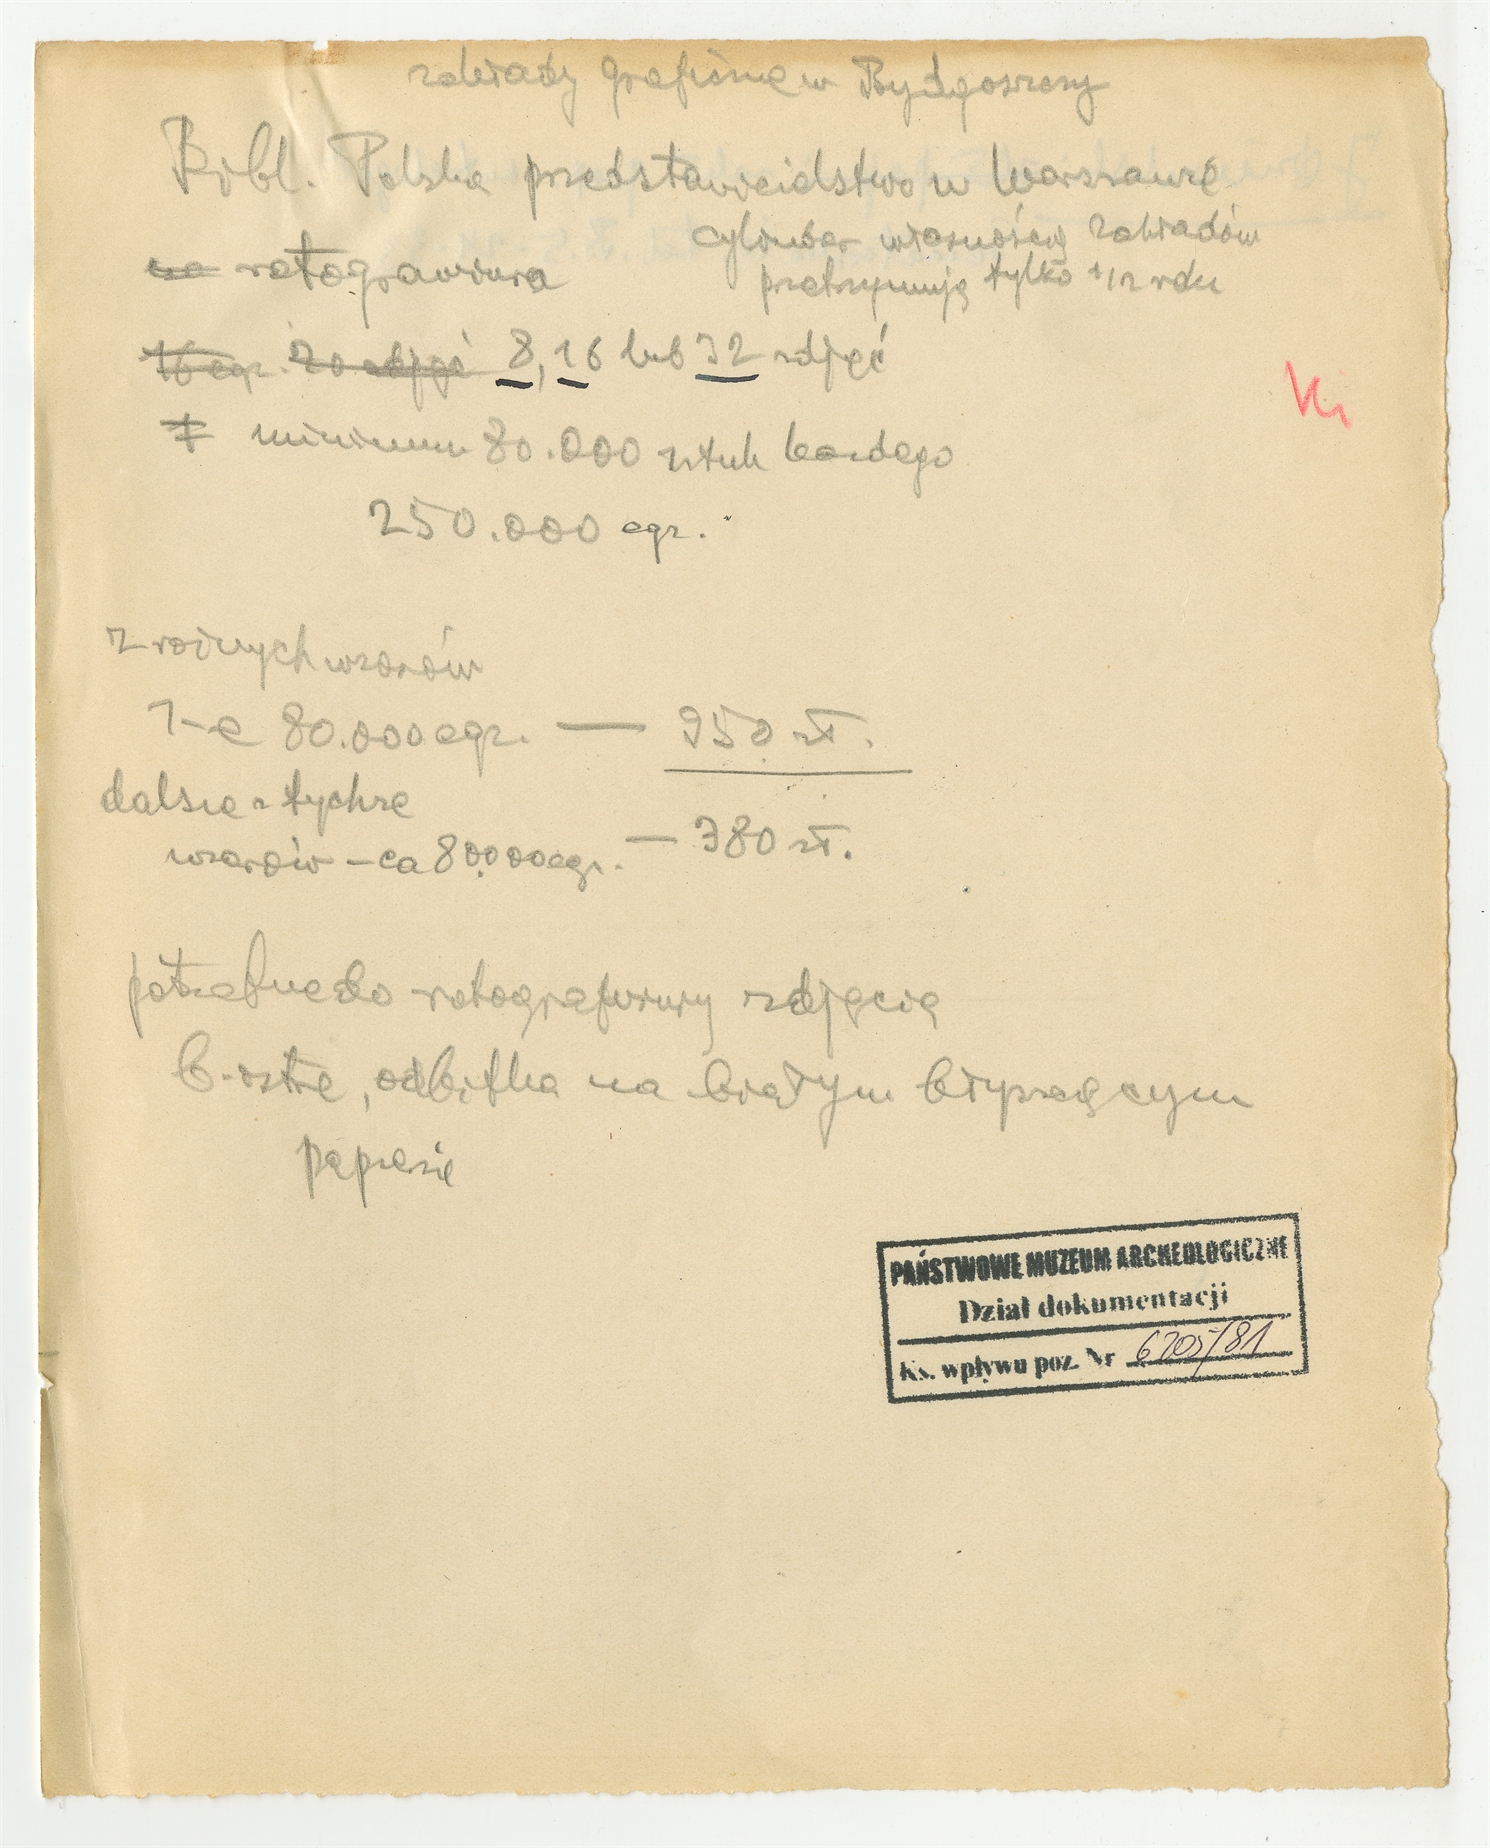 zakłady graficzne w Bydgoszczy
Bibl. Polska przedstawicielstwo w Warszawie
cylinder własnością zakładów
rotograwiura
przetrzymują tylko 1/2 roku
16 egz. 20 zdjęć 8, 16 lub 32 zdjęć
minimum 80.000 sztuk każdego
250.000 egz.
z różnych wzorów
1-e 80.000 egz. — 950 zł.
dalsze z tychże
wzorów – ca 80.000 egz. — 380 zł.
potrzebne do rotograwiury zdjęcia
b. ostre, odbitka na białym błyszczącym
papierze
Ki
PAŃSTWOWE MUZEUM ARCHEOLOGICZNE
Dział dokumentacji
Ks. wpływu poz. Nr 6205/81